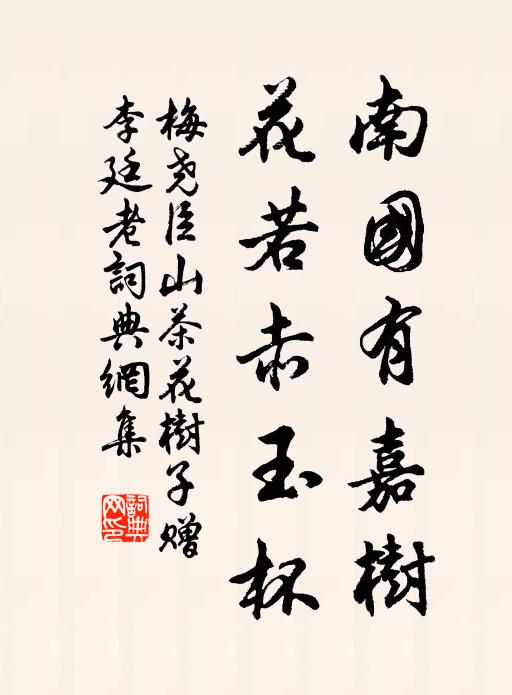 南國有嘉樹
花若赤玉杯
梅堯臣山茶花樹子贈
李廷老詞典網集
詞典
网印